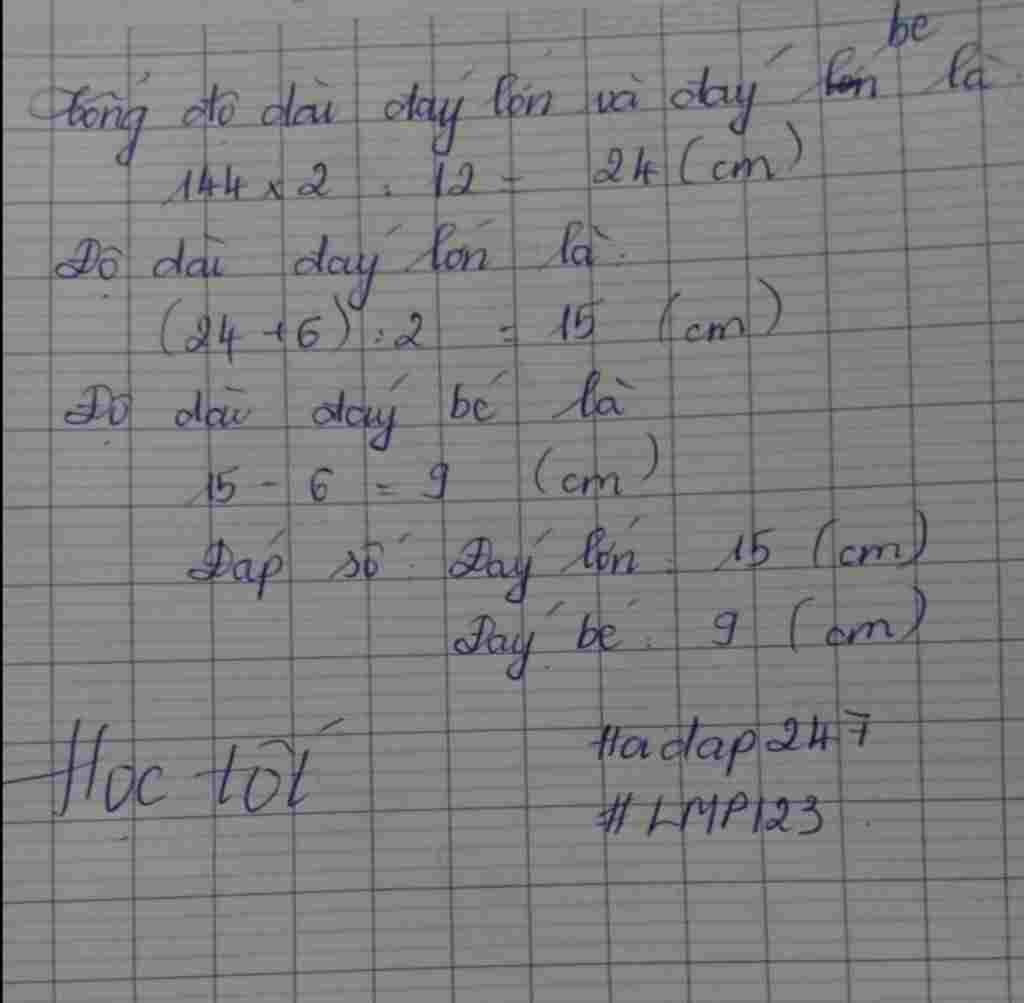 Tổng độ dài đáy lớn và đáy bé là
144 x 2 : 12 = 24 (cm)
Độ dài đáy lớn là:
(24 + 6) : 2 = 15 (cm)
Độ dài đáy bé là
15 - 6 = 9 (cm)
Đáp số: Đáy lớn: 15 (cm)
Đáy bé: 9 (cm)
Học tốt
#adap247
#LMP123